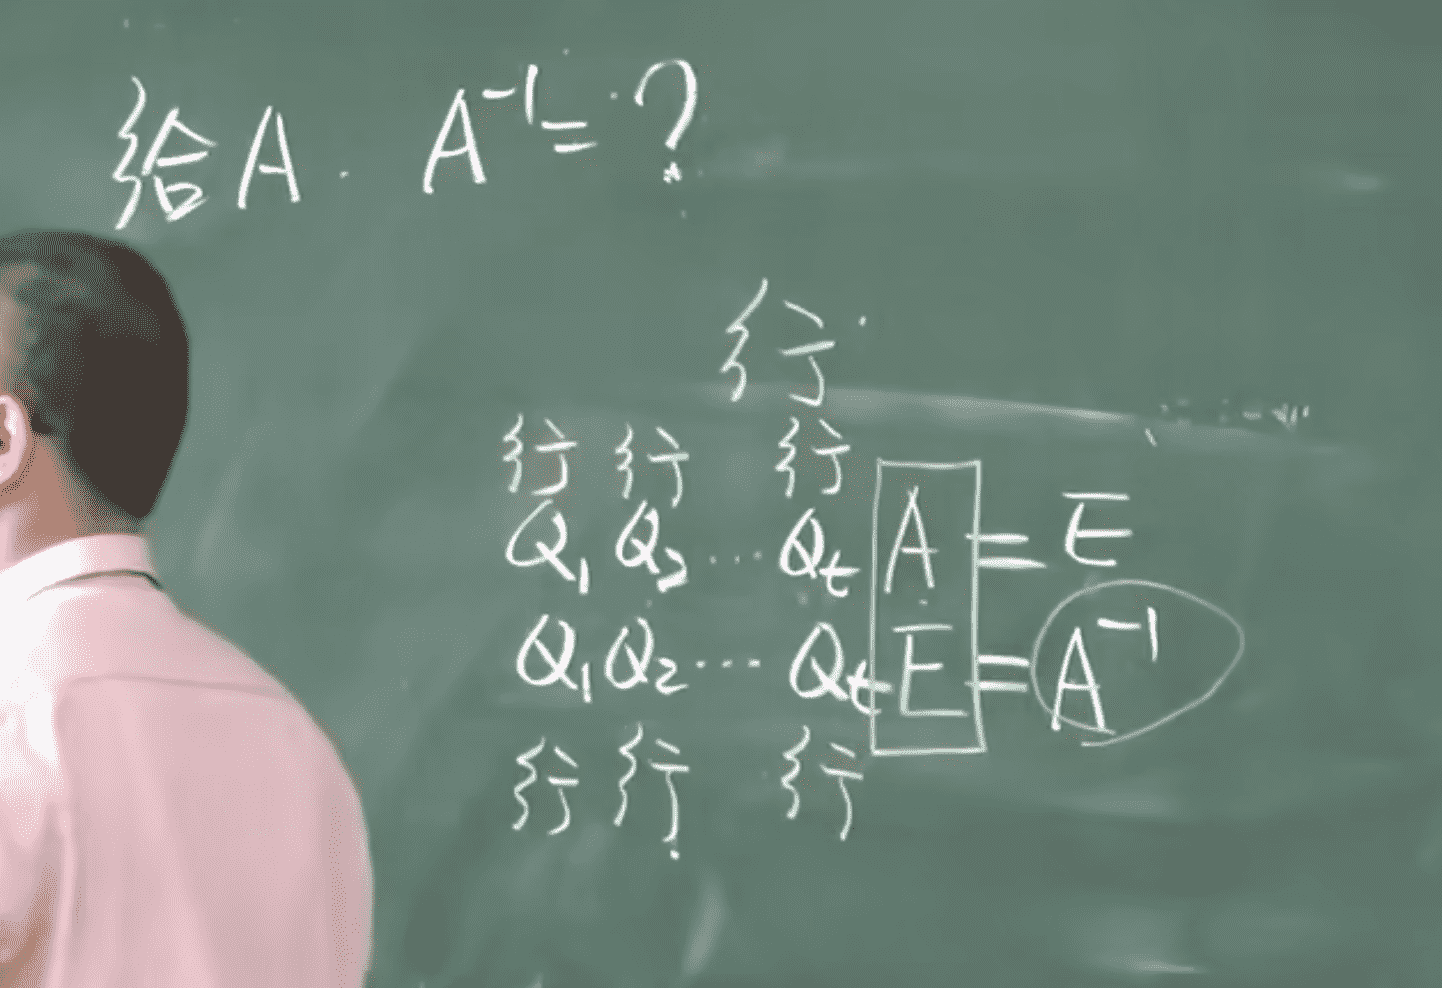 给A. A⁻¹=?
行
行 行 行
Q₁ Q₂ ... Qt A = E
Q₁ Q₂ ... Qt E = A⁻¹
行 行 行